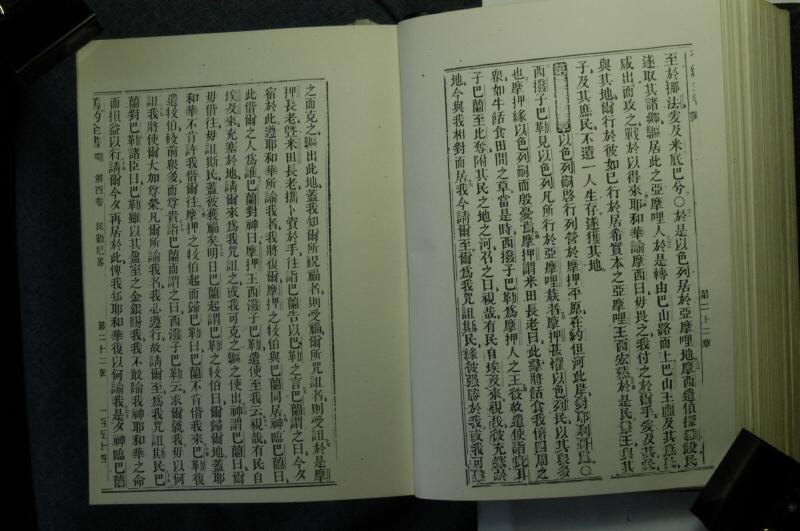 至於挪法爰及米底巴兮○於是以色列居於亞摩哩地摩西遣伯探
遂取其諸鄉驅居此之亞摩哩人於是轉由巴山路而上巴山王
咸出而攻之戰於以得來耶和華諭摩西曰毋畏之我付之於爾手爰及其民
與其地爾行於彼如已行於居希實本之亞摩哩王西宏然於是民
子及其庶民不遺一人生存遂獲其地
以色列嗣啟行列營於摩押平原在約但河此岸
西潑子巴勒見以色列凡所行於亞摩哩族者摩押甚懼以色列民以其眾多
也摩押緣以色列嗣而殷憂焉摩押謂米田長老曰此羣將餂食我儕四周之
眾如牛餂食田間之草當是時西潑子巴勒為摩押人之王彼故遣使詣
子巴蘭至比奪附其民之地之河召之曰視哉有民自埃及來視哉彼充
地今與我相對而居我今請爾至爾為我咒詛斯民緣彼強勝於我或我
第二十二章
之而克之驅出此地蓋我知爾所祝福者則受福爾所咒詛者則受詛於是摩
押長老暨米田長老攜卜資於手往詣巴蘭告以巴勒之言巴蘭謂之曰今夕
宿於此遵耶和華所諭我者我將復爾摩押之牧伯與巴蘭同居神臨巴蘭曰
此偕爾之人為誰巴蘭對神曰摩押王西潑子巴勒遣使至我云視哉有民自
埃及來充塞於地請爾來為我咒詛之或我可克之驅之使出神謂巴蘭曰爾
毋偕往毋詛斯民蓋彼獲福矣明日巴蘭起謂巴勒之牧伯曰爾歸爾地蓋耶
和華不肯許我偕爾往摩押之牧伯起而歸巴勒曰巴蘭不肯偕我來巴勒復
遣牧伯較前眾多而尊貴詣巴蘭而謂之曰西潑子巴勒云求爾就我毋以何
詛我將使爾大加尊榮凡爾所諭我者我必遵行故請爾至為我咒詛斯民巴
蘭對巴勒諸臣曰巴勒雖以其盈室之金銀賜我我不敢踰我神耶和華之命
而損益以行請爾今夕再居於此俾我知耶和華復以何諭我是夕神臨巴蘭
舊約全書 第四卷 民數紀畧 第二十二章 一至五十